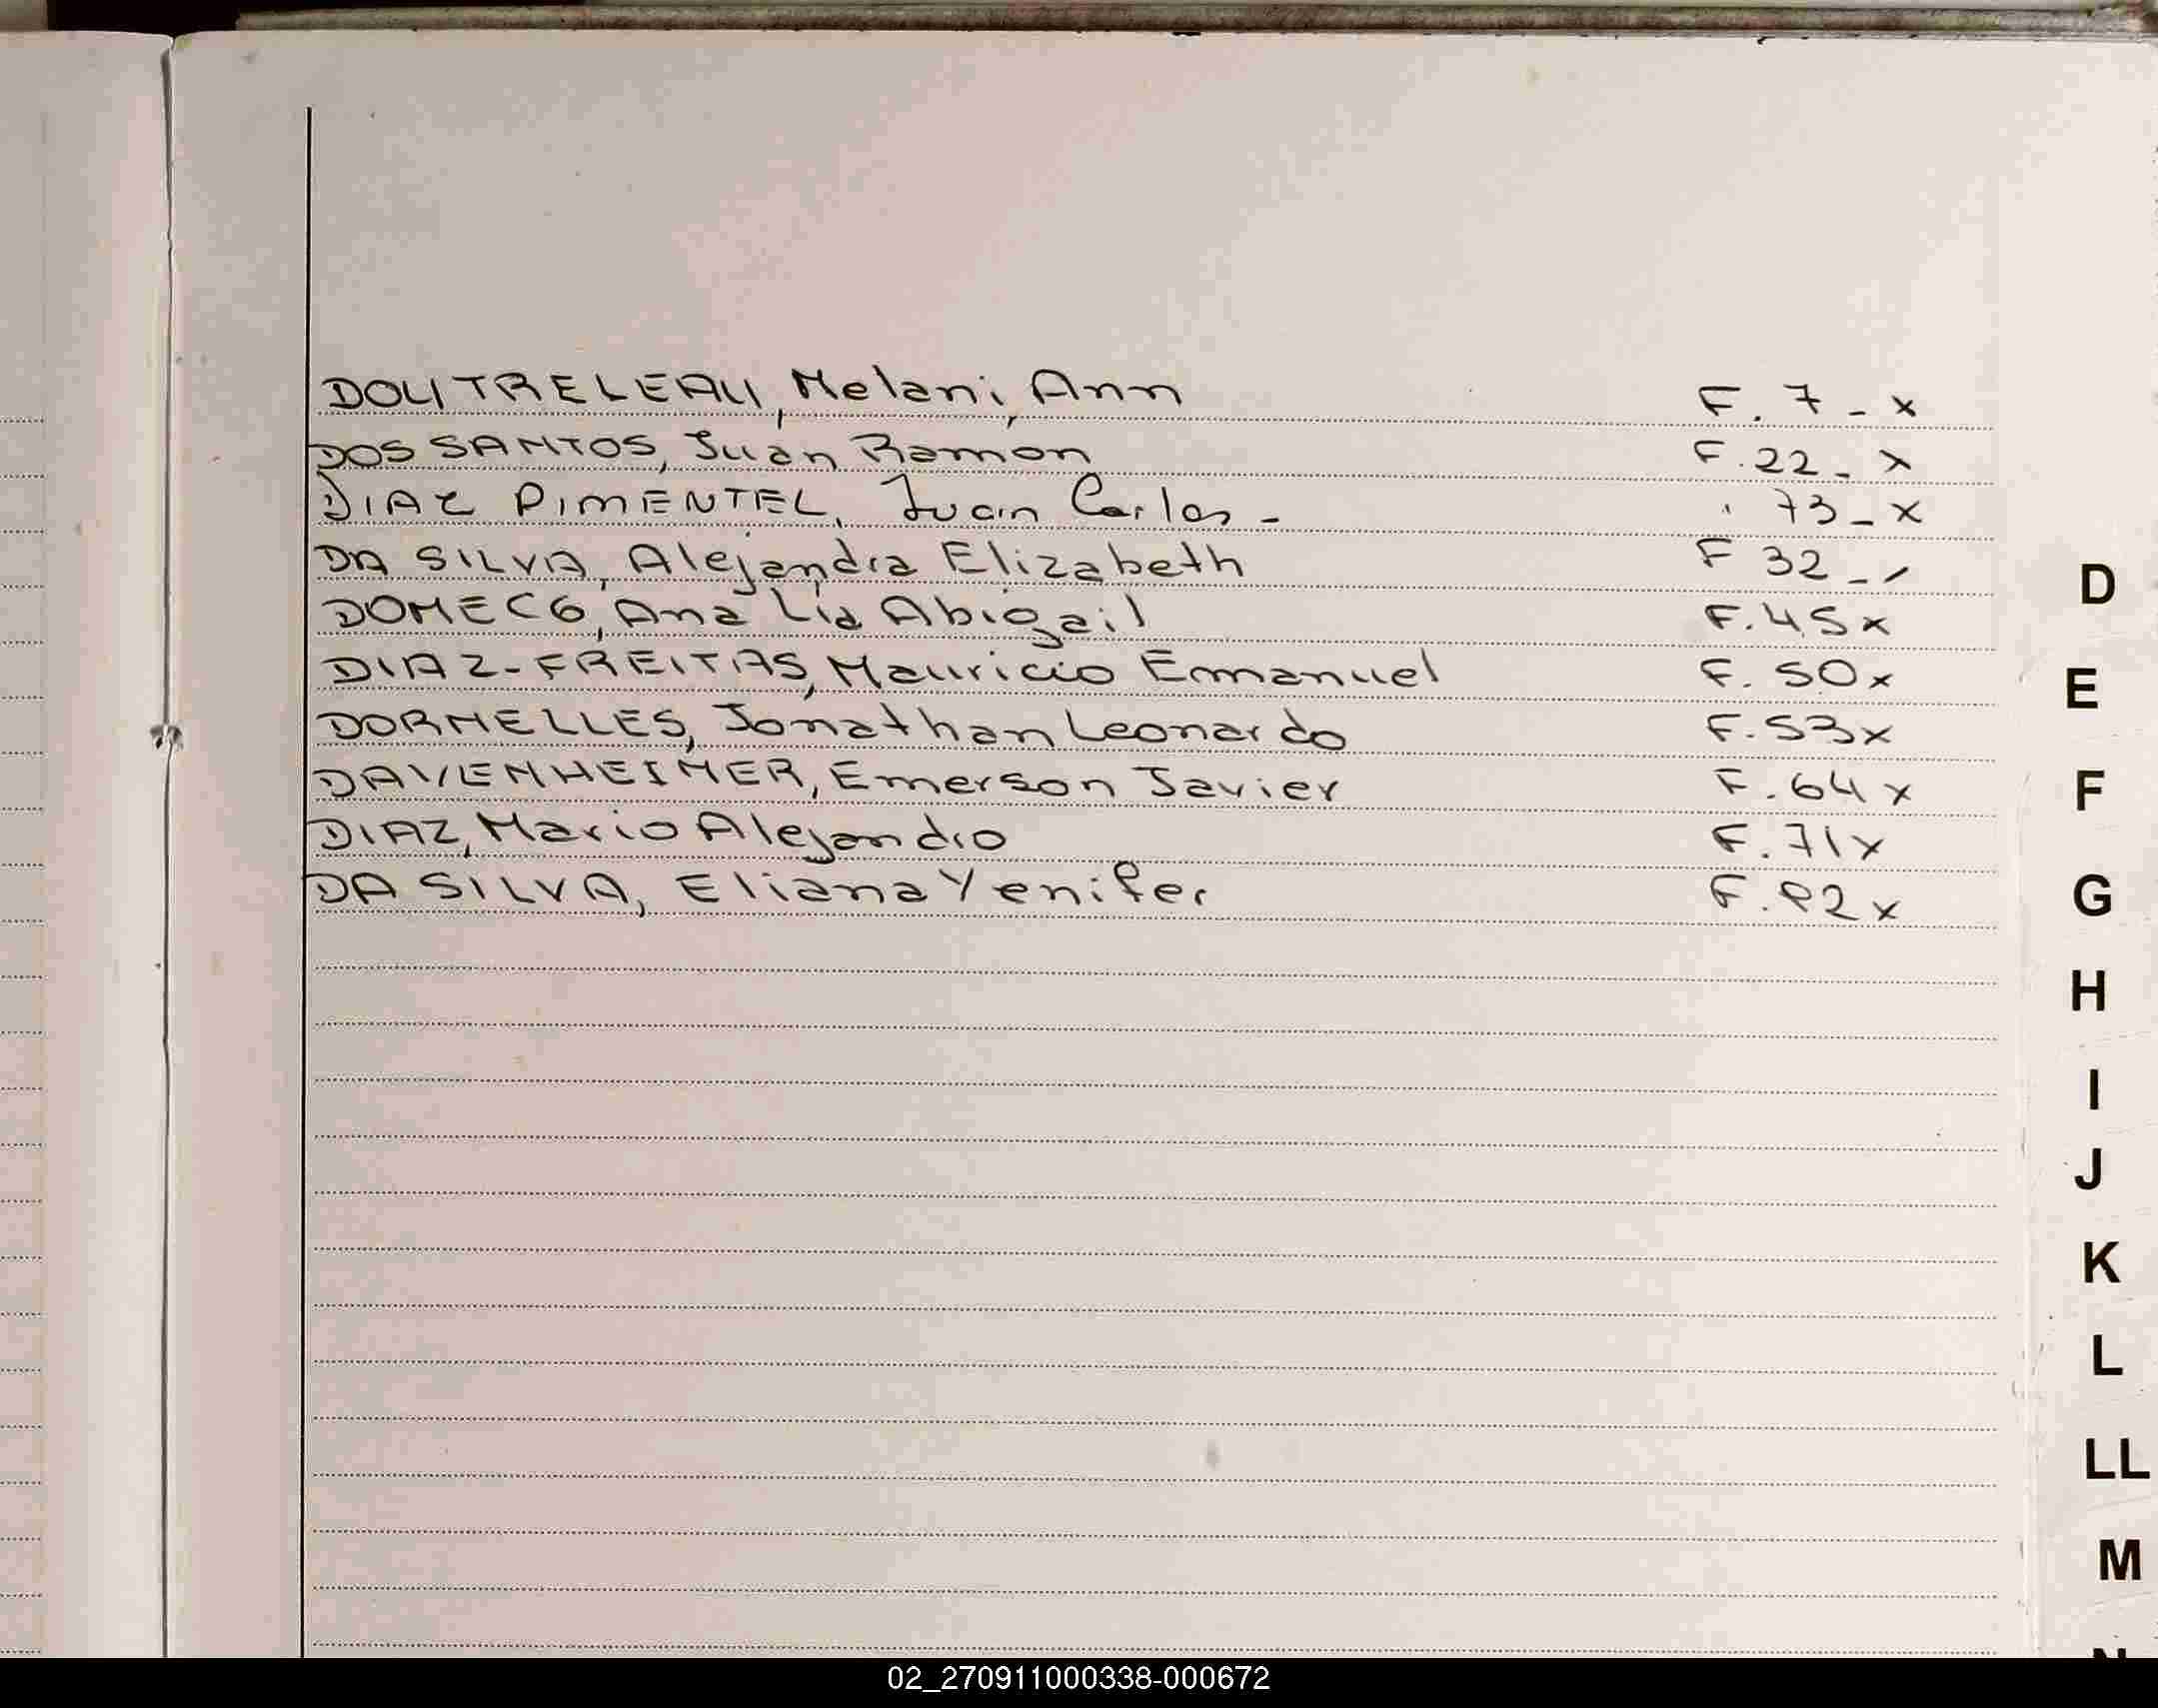 DOUTRELEAU, Melani, Ann F. 7 - x
DOS SANTOS, Juan Ramon F. 22 - x
DIAZ PIMENTEL, Juan Carlos - " 73 - x
DA SILVA, Alejandra Elizabeth F 32 - /
DOMECG, Ana Lia Abigail F. 45 x
DIAZ-FREITAS, Mauricio Emanuel F. 50 x
DORNELLES, Jonathan Leonardo F. 53 x
DAVENHEIMER, Emerson Javier F. 64 x
DIAZ, Mario Alejandro F. 71 x
DA SILVA, Eliana Yenifer F. 82 x
D
E
F
G
H
I
J
K
L
LL
M
02_270911000338-000672